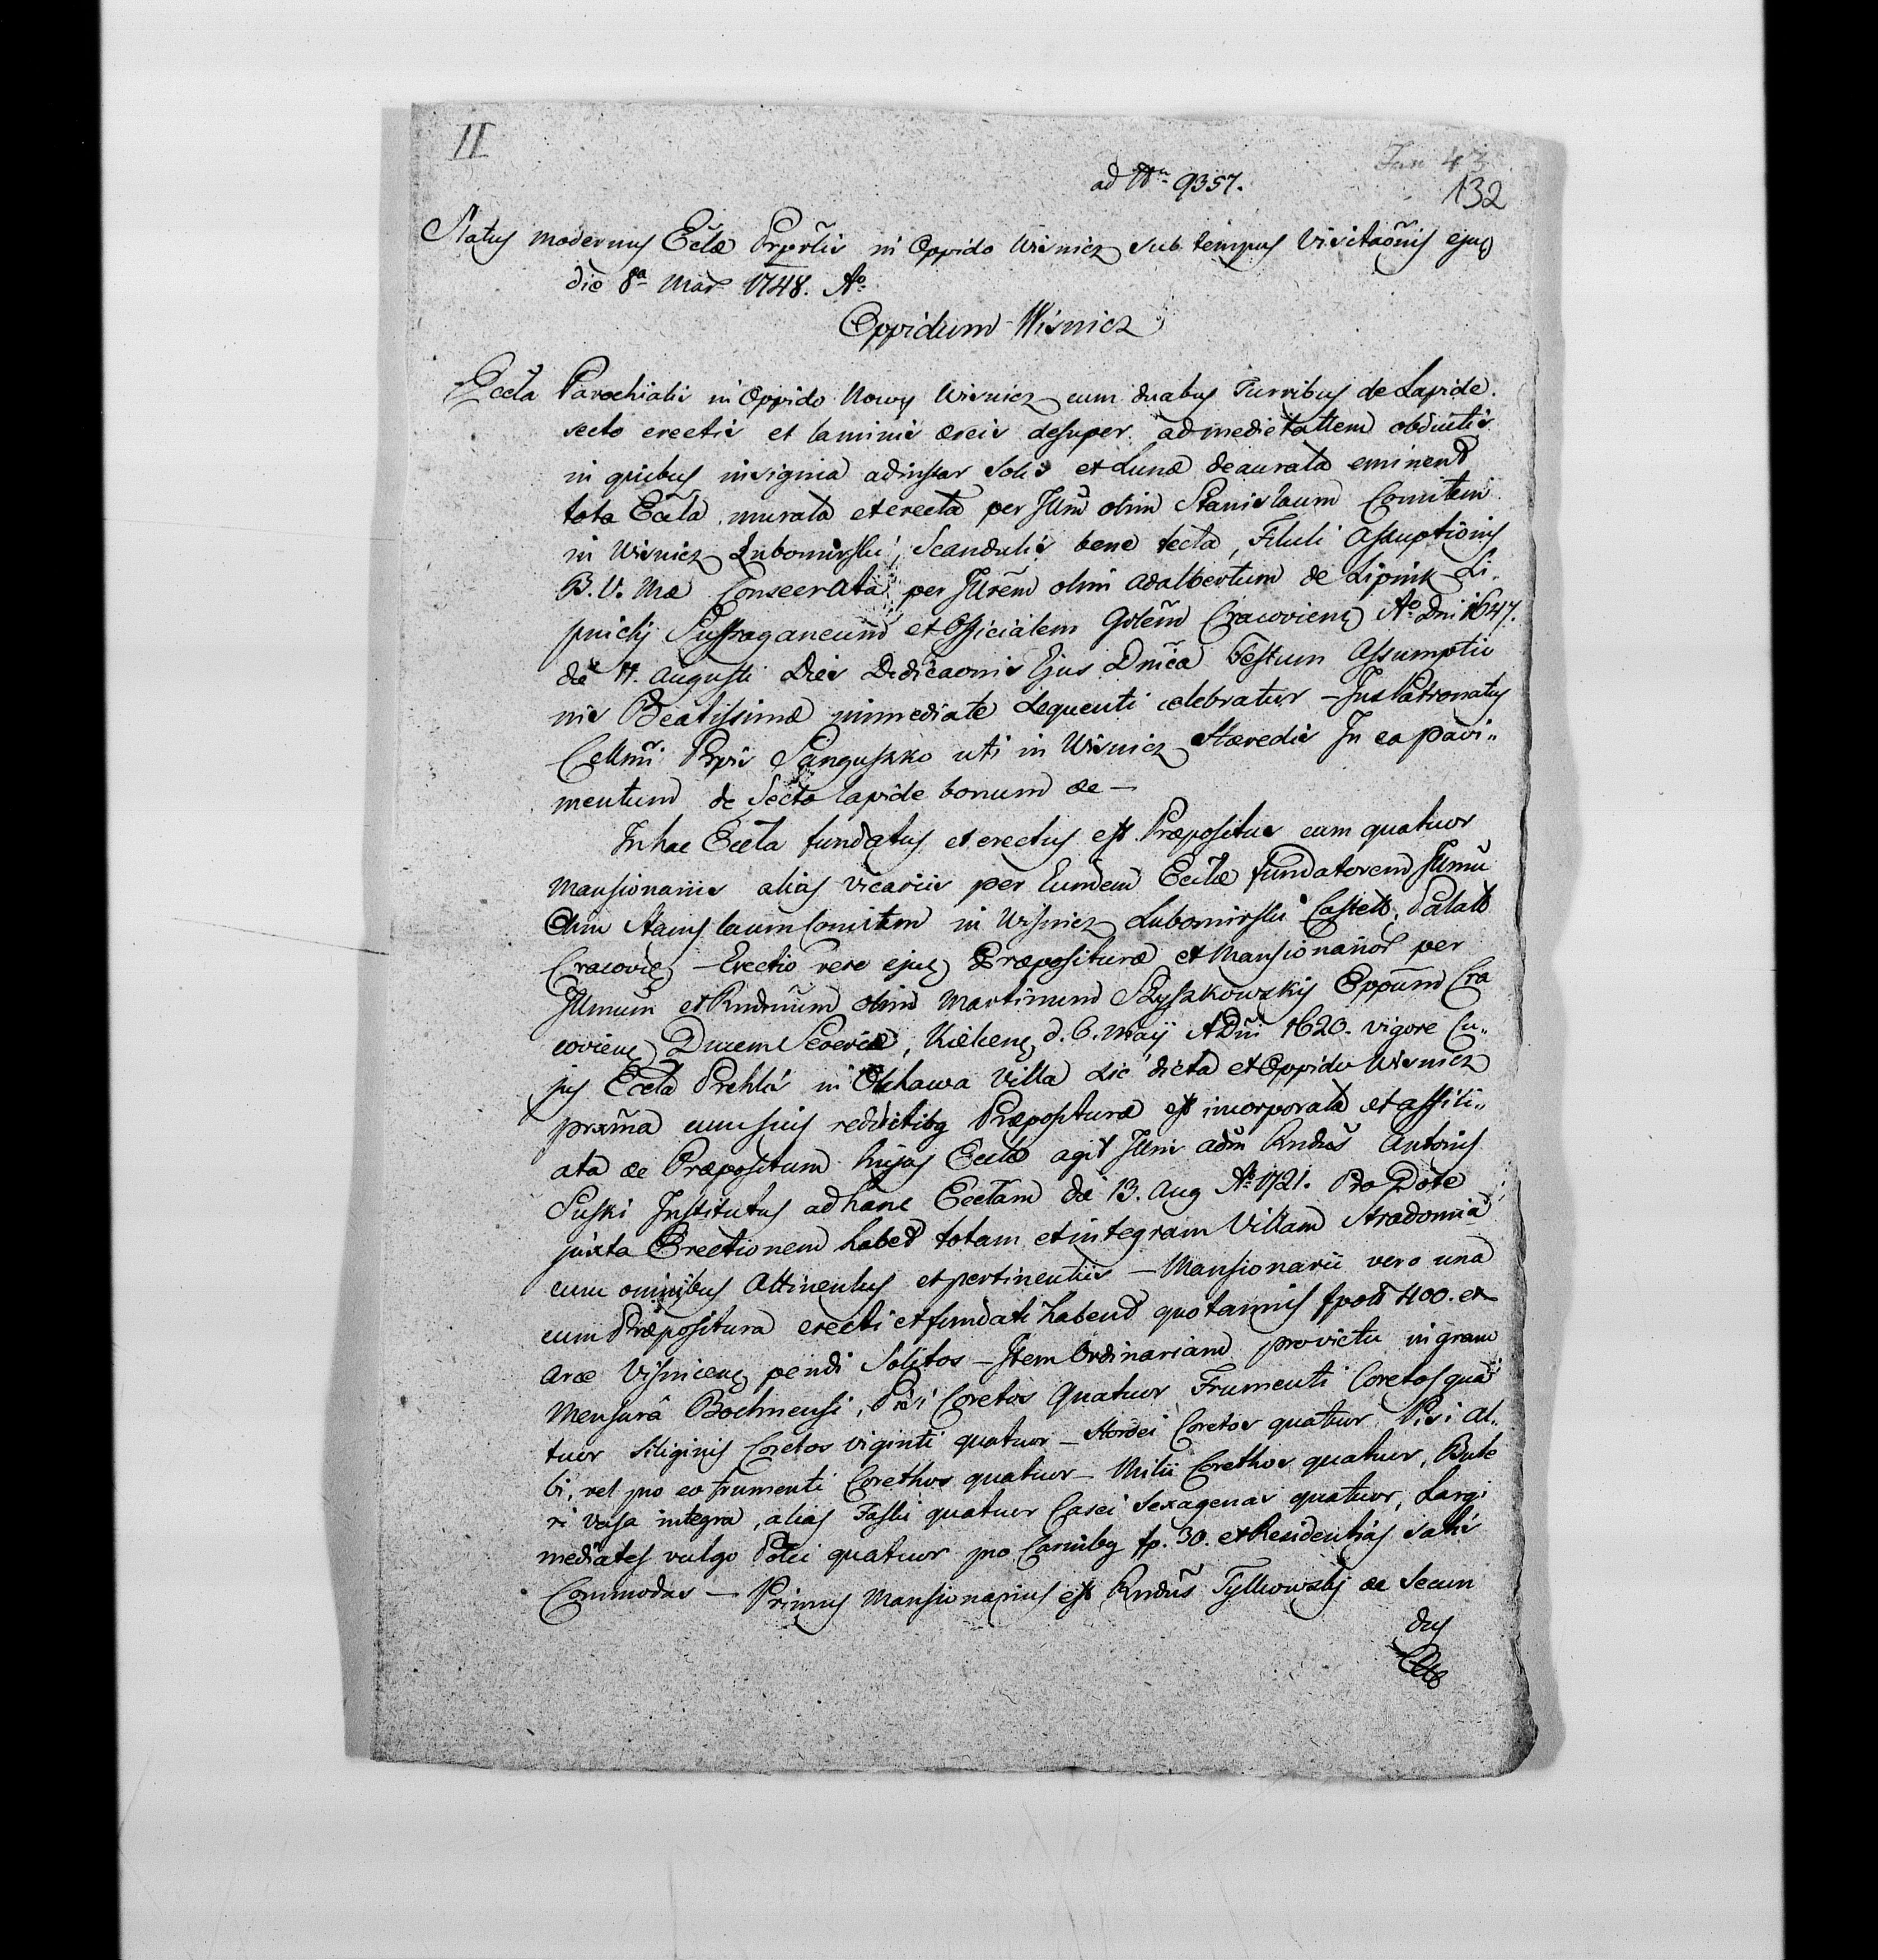 II
ad Nrū 9357.
132
Status modernus Eclæ Prpõlis in Oppido Wisnicz sub tempus Visitaõnis ejus
die 8ª Mar 1748. Aº
Oppidum Wisnicz
Eccla Parochialis in Oppido Nowy Wisnicz cum duabus Turribus de Lapide
secto erectis et laminis æreis desuper ad medietattem obductis
in quibus insignia adinstar Solis et Lunæ deaurata eminent
tota Eccla murata et erecta per Illm̃ olim Stanislaum Comitem
in Wisnicz Lubomirski, Scandulis bene tecta, Tituli Assuptionis
B. V. Mæ Consecrata per Illrem̃ olim Adalbertum de Lipnik Li-
pnicki Suffraganeum et Officialem Gñlem Cracoviens Aº Dni 1647.
die 11. Augusti Dies Dedicãonis Ejus Dnĩca Festum Assumptio
nis Beatissimæ immediate sequenti celebratur – Jus Patronatus
Cellmi Prpis Sanguszko uti in Wisnicz Hæredis In ea pavi-
mentum de Secto lapide bonum ae –
In hac Eccla fundatus et erectus est Præpositus cum quatuor
Mansionariis alias Vicariis per Eundem Ecclæ fundatorem Illmũ
Olim Stanislaum Comitem in Wisnicz Lubomirski Castell, Palatt
Cracovie – Erectio vero ejus Præposituræ et Mansionarior per
Illmum et Rndmum olim Martinum Szyszkowskij Eppum Cra
coviens Ducem Severiæ, Kielcens d. 6. Maij A Dñi 1620. vigore Cu-
jus Eccla Prchlis in Villa sic dicta et Oppido Wisnicz
prxĩma cum suis redditibg Præposituræ est incorporata et affili-
ata ae Præpositum hujus Ecclæ agit Illm adm̃ Rndus̃ Antonius
Suski Institutus ad hanc Ecclam de 13. Aug Aº 1721. Pro Dote
juxta Erectionem habet totam et integram Villam Stradomia
cum omnibus Attinentiis et pertinentiis – Mansionarii vero una
cum Præpositura erecti et fundati habent quotannis fpoll 400. ex
Arce Visnicens pendi Solitos – Item Ordinariam pro victu in grano
Mensurâ Bochnensi, Coretos Quatuor Frumenti Coretos qua
tuor Siliginis Coretos viginti quatuor – Hordei Coretos quatuor Pisi Al-
bi, vel pro eo frumenti Corethos quatuor – Milii Corethos quatuor, Bute
ri Vasa integra, alias Faski quatuor Casei Sexagenas quatuor, Laridi
mediates vulgo Połci quatuor pro Carnibg fp. 30. et Residentias satis
Commodas – Primus Mansionarius est Rndus̃ Tylkowskj ae Secun
dus